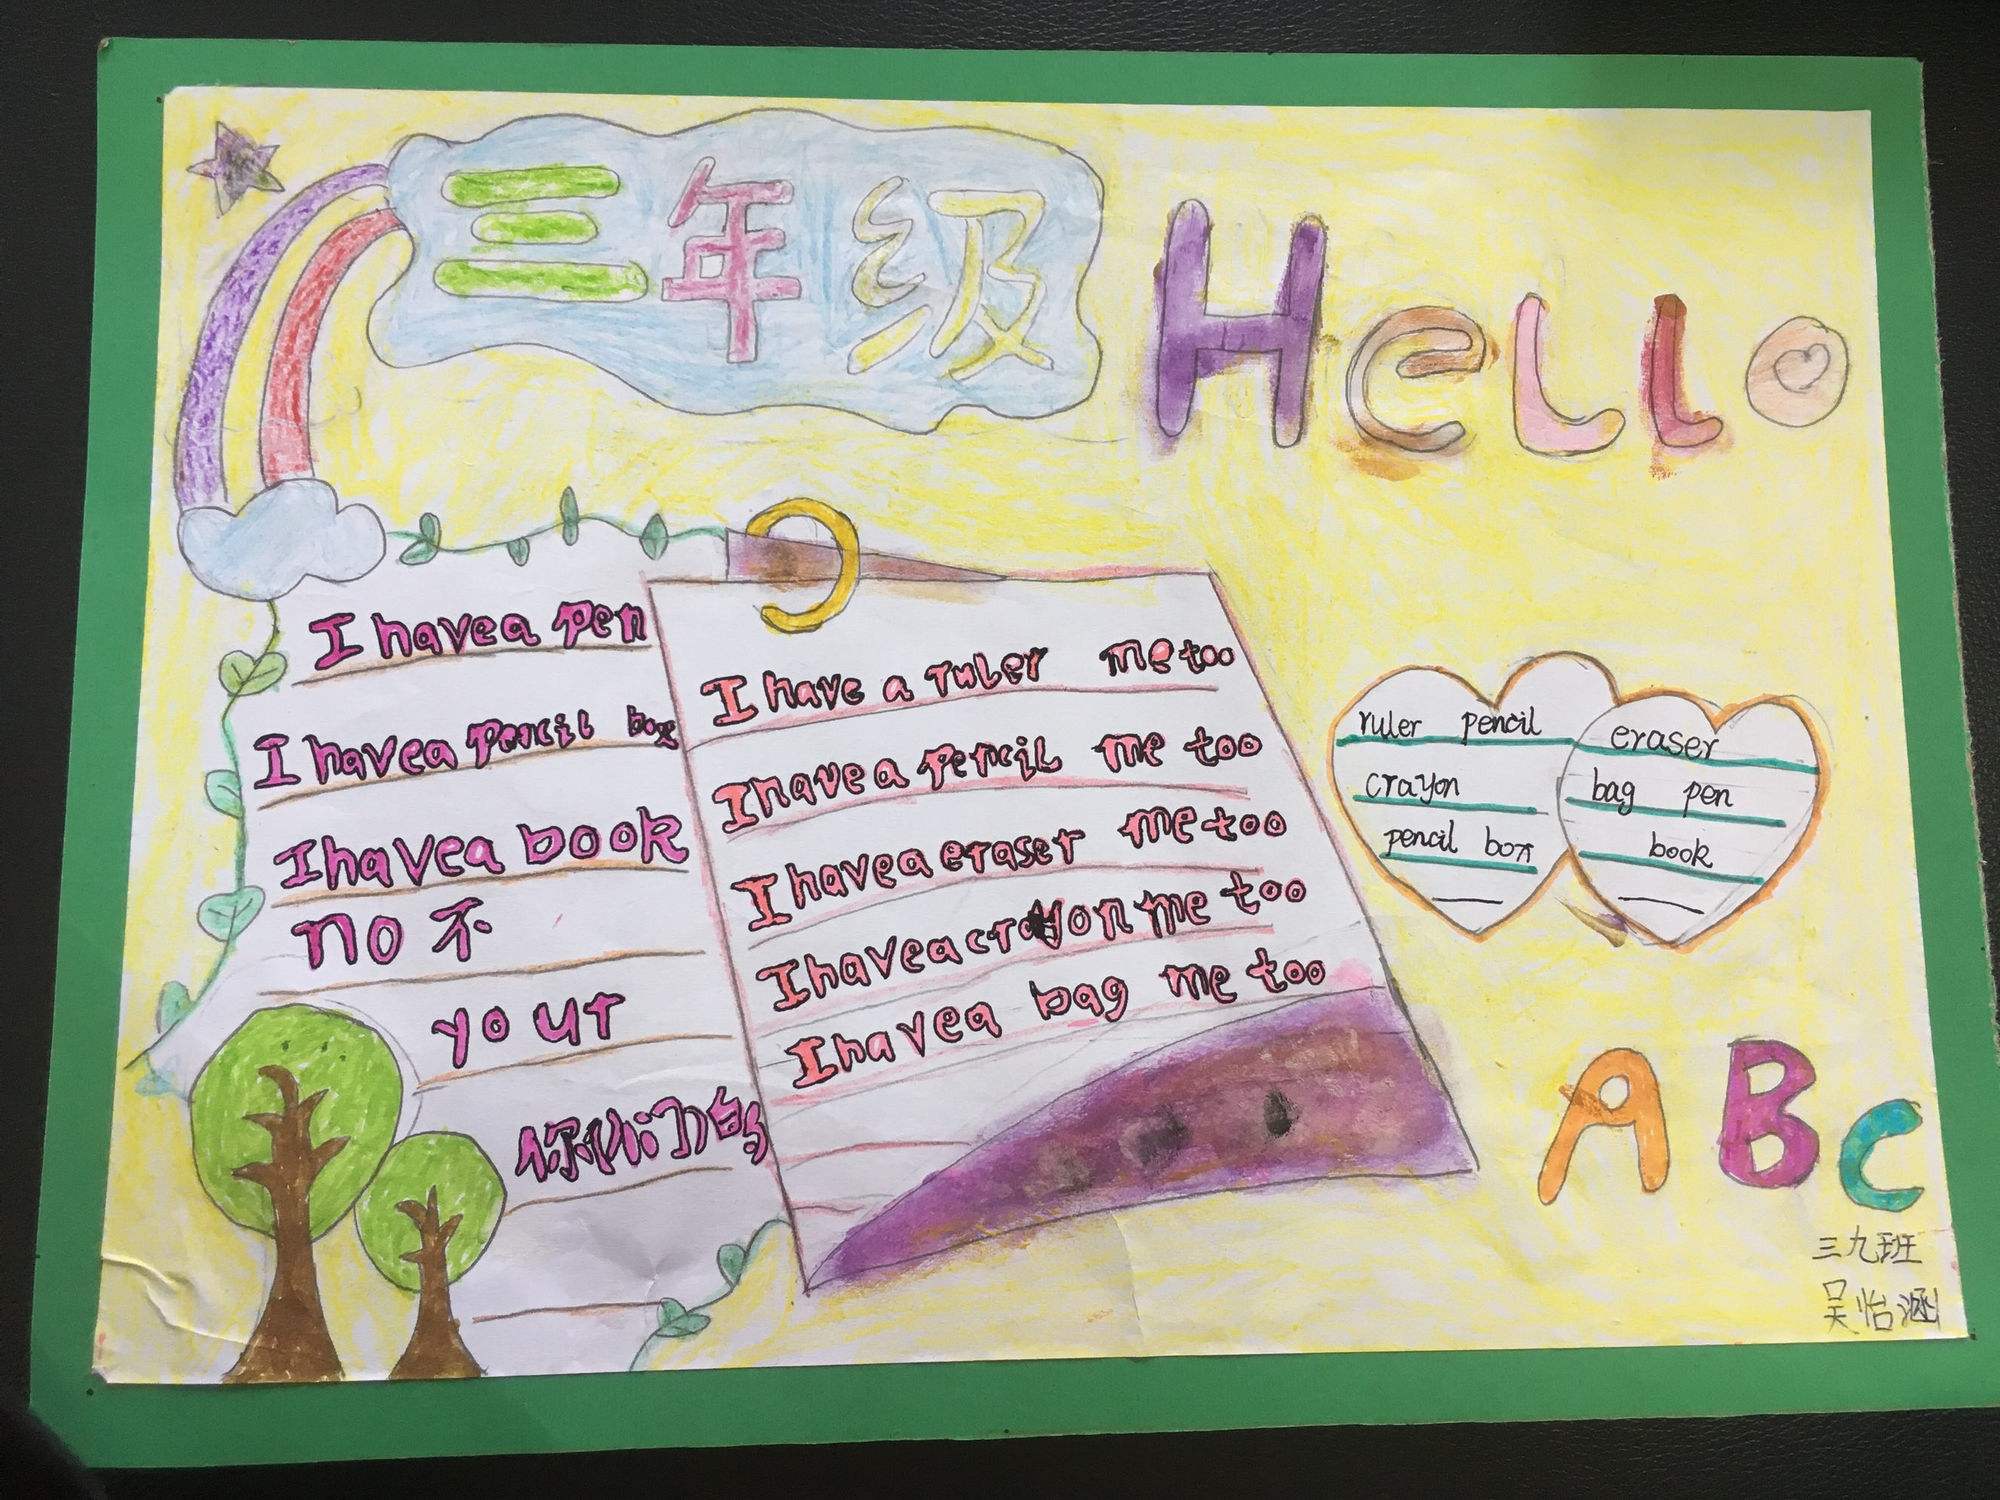 三年级
HeLLo
I have a pen
I have a pencil box
I have a book
no 不
your
你(你们)的
I have a ruler me too
I have a pencil me too
I have a eraser me too
I have a crayon me too
I have a bag me too
ruler pencil
crayon
pencil box
eraser
bag pen
book
A B C
三九班
吴怡涵